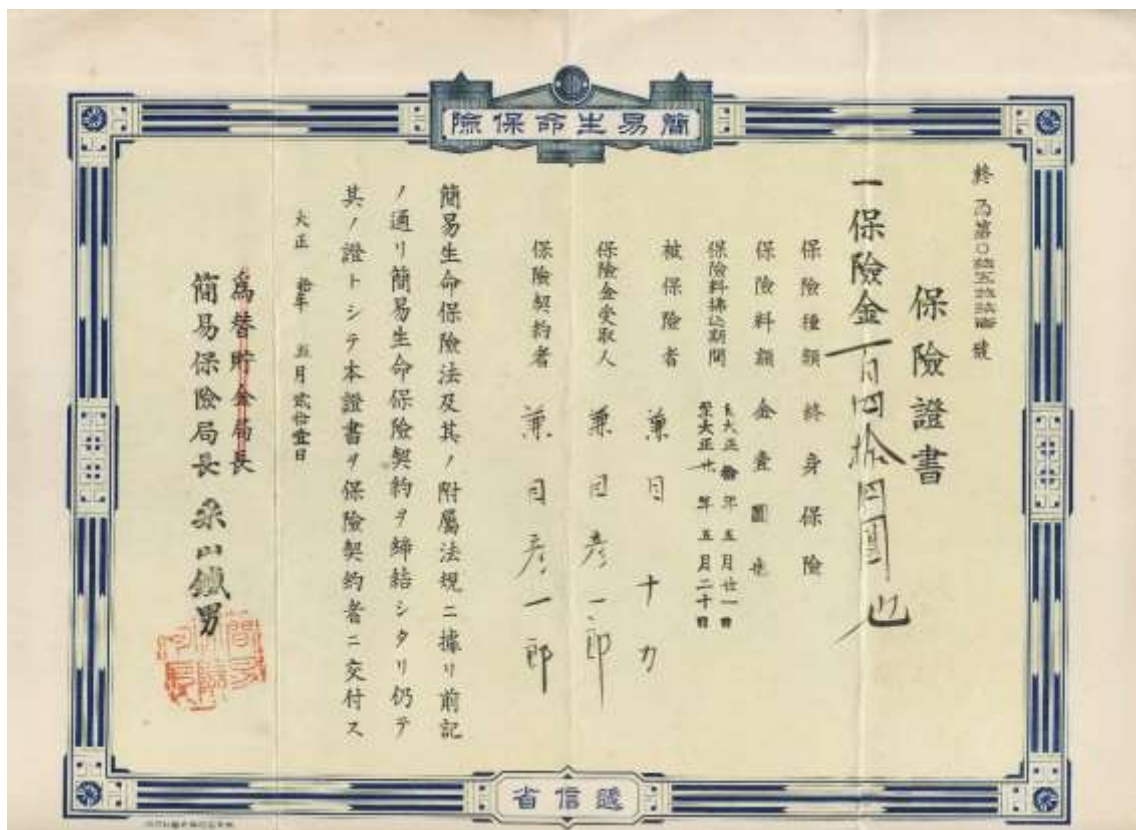 簡易生命保險
保險證書
一保險金一百四拾四圓也
保險種類 終身保險
保險料額 金壹圓也
保險料拂込期間
自大正拾年五月廿一日
至大正廿年五月二十日
被保險者 兼目
保險金受取人 兼目彥一郎
保險契約者 兼目彥一郎
簡易生命保險法及其ノ附屬法規ニ據リ前記
ノ通リ簡易生命保險契約ヲ締結シタリ仍テ
其ノ證トシテ本證書ヲ保險契約者ニ交付ス
大正拾年五月貳拾壹日
爲替貯金局長
簡易保險局長 桑山鐵男
遞信省